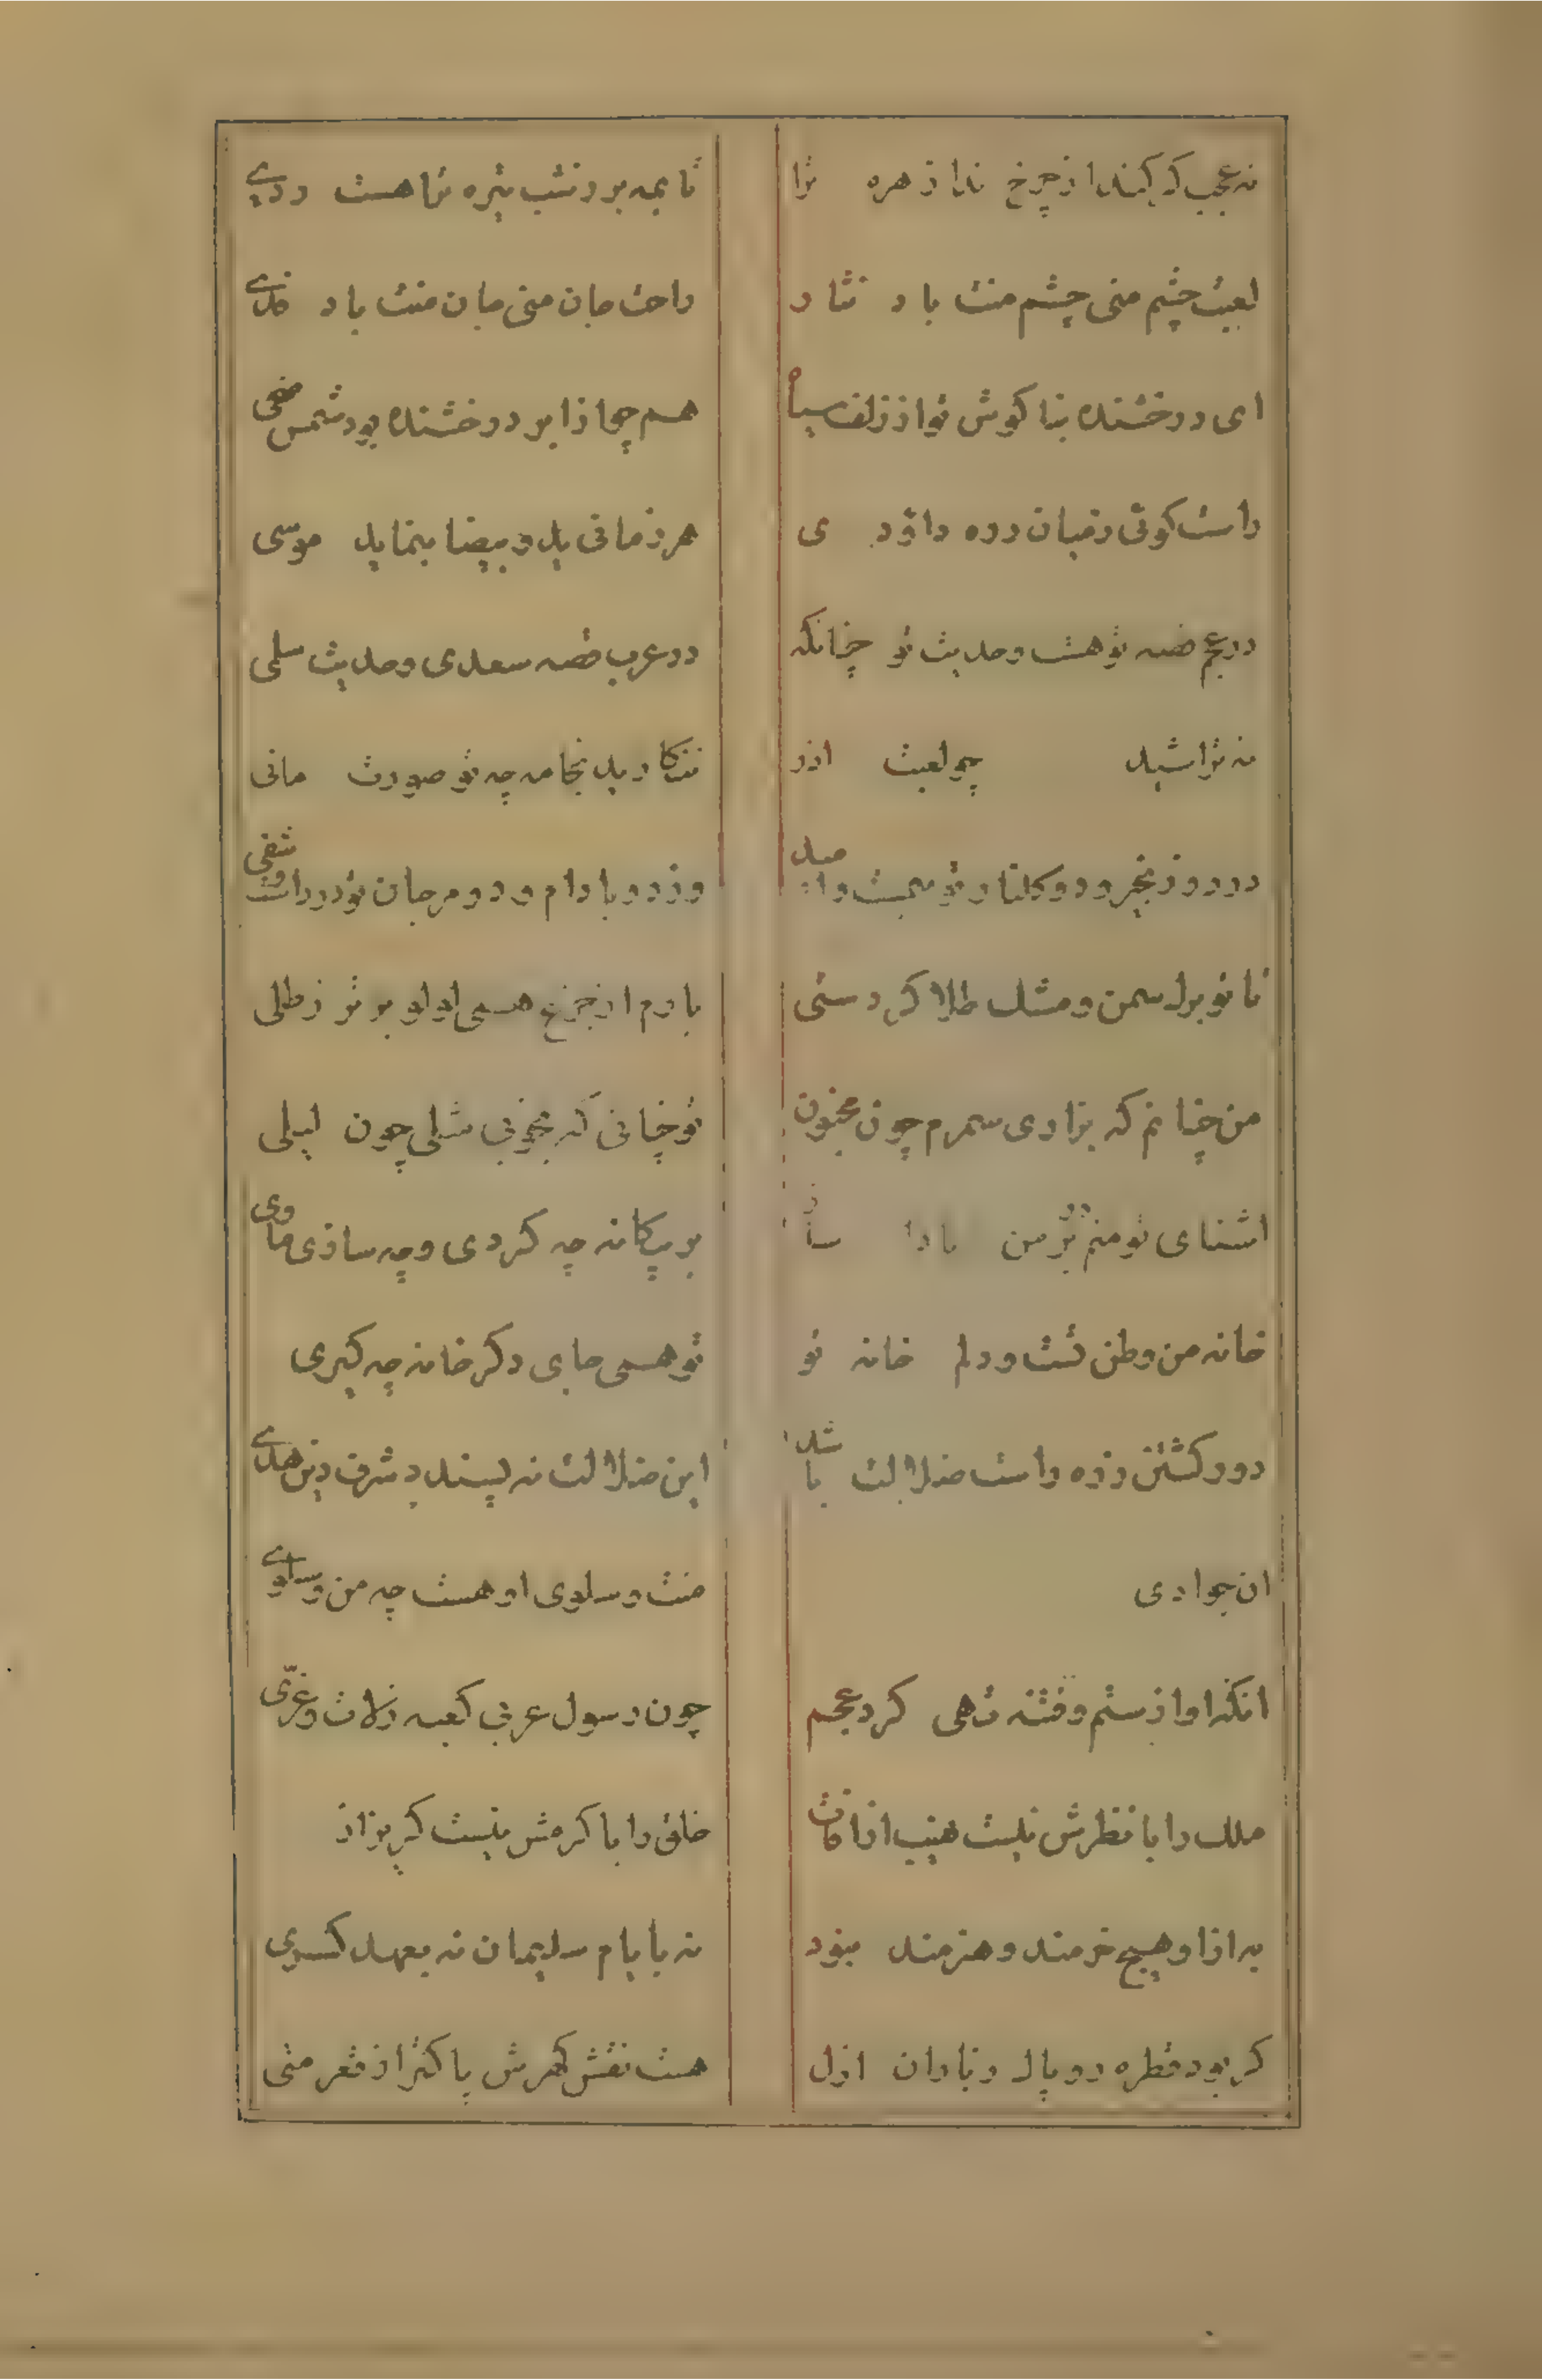 نه عجب کر کند از چرخ ندا زهره ترا
تا نجه بر د نشب تیره تراهست ردی
لعبت چشم منی چشم منت باد نثار
راحت جان منی جان منت باد فدی
ای درخشنده بناکوش تو از زلف سیاه
همچو از ابر درخشنده بود شمس ضحی
راست کوئی زمیان زره داود ی
هر زمانی ید و بیضا بنماید موسی
در عجم قصه تو هست و حدیث تو چنانکه
در عرب قصه سعدی و حدیث سلمی
نه تراشید چو لعبت ازر
ننکارید بخامه چه تو صورت مانی
در دو زنجیر و دو کلنار تو
وز دو بادام و دو مرجان تو در راست شفی
تا تو بر سمن و مشک طلا کردستی
بارم از جزع همی لولو بر زر طلی
من چنانم که بزاری سمرم چون مجنون
تو چنانی که بخوبی مثلی چون لیلی
اشنای تو منم بر من
بر بیکانه چه کردی و چه سازی ماوی
خانه من وطن تست و دلم خانه تو
تو همی جای دکر خانه چه کیری
دور کشتن زره راست ضلالت باشد
این ضلالت نه پسندد شرف دین هدی
ان جوادی
منت و سلوی او هست چه من و سلوی
انکه او از ستم و فتنه تهی کرد عجم
چون رسول عربی کعبه زلات و عزی
ملک را با نظرش نیست نهیب از افات
خلق را با کرمش نیست کریز از
به از او هیچ خرمند و هنرمند نبود
نه بایام سلیمان نه بعهد کسری
کر بود قطره در پاک زباران ازل
هست نقش کهرش پاکتر از قعر منی